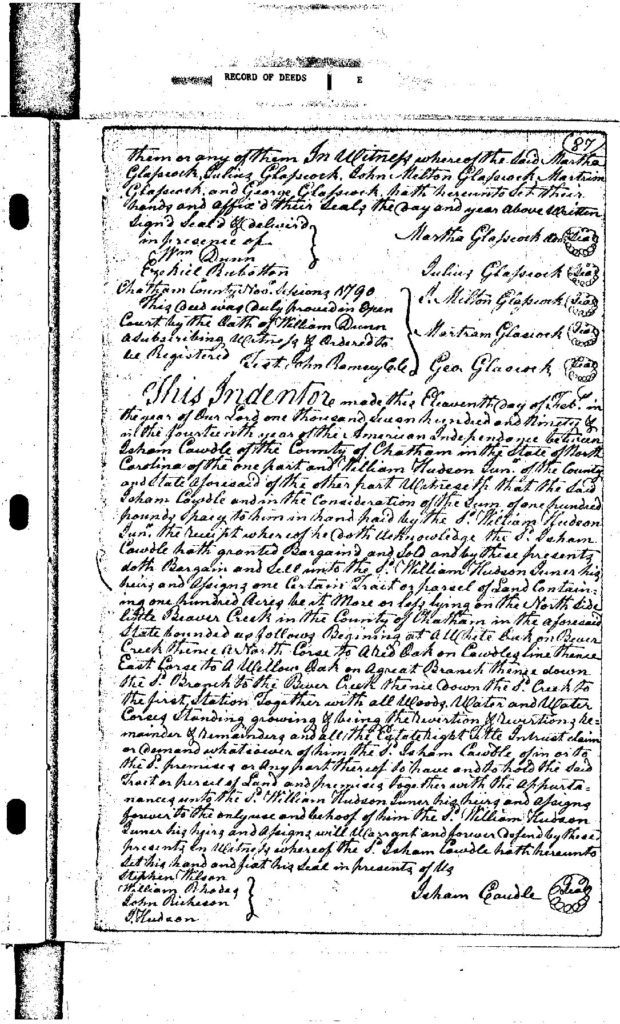 RECORD OF DEEDS E
87
them or any of them In Witness whereof the said Martha
Glasscock, Julius Glasscock, John Milton Glasscock, Martrim
Glasscock, and George Glasscock, hath hereunto Set their
hands and affix'd their Seals the Day and year above written
Signd Seald & deliverd
in presence of
Wm Dunn
Ezekiel Rubotton
Martha Glasscock Seal
Julius Glasscock Seal
J. Milton Glasscock Seal
Martram Glascock Seal
Geo. Glascock Seal
Chatham County Novr. Sessions 1790
This Deed was Duly proved in Open
Court by the Oath of William Dunn
a Subscribing Witness & Ordered to
be Registered Test. John Ramsey C.C.
This Indentore made this Eleventh Day of Febr. in
the year of Our Lord one thousand Seven hundred and Ninety &
in the fourteenth year of their American Independance between
Isham Cawdle of the County of Chatham in the State of North
Carolina of the one part and William Hudson Junr. of the County
and State aforesaid of the other part Witnesseth that the Said
Isham Cawdle and in the Consideration of the Sum of one hundred
pounds Specy to him in hand paid by the Sd. William Hudson
Junr. the receipt whereof he doth Acknowledge the Sd. Isham
Cawdle hath granted Bargaind and Sold and by these presents
doth Bargain and Sell unto the Sd. William Hudson Juner his
heirs and Assigns one Certain Trait or parsel of Land Contain-
ing one hundred Acres be it More or less lying on the North Side
little Beaver Creek in the County of Chatham in the aforesaid
State bounded as follows Begining at A White Oak on Bever
Creek thence A North Corse to A Red Oak on Cawdles line thence
East Corse to A Willow Oak on A great Branch thence down
the Sd. Branch to the Bever Creek thence down the Sd. Creek to
the first Station Together with all Woods, Water and Water
Corses Standing growing & being the Revertion & revertions re-
mainder & remainders and all the Estate Right Title Intrust claim
or Demand whatsoever of him the Sd. Isham Cawdle of in or to
the Sd. premises or Any part thereof to have and to hold the Said
Trait or persel of Land and premises together with the Appurta-
nances unto the Sd. William Hudson Juner his heirs and Assigns
forever to the only use and behoof of him the Sd. William Hudson
Juner his heirs and Assigns will Warrant and forever Defend by these
presents In Witness whereof the Sd. Isham Cawdle hath hereunto
Set his hand and fixt his Seal in presents of Us
Stephen Wilson
William Rhodes
John Richeson
J. Hudson
Isham Caudle Seal